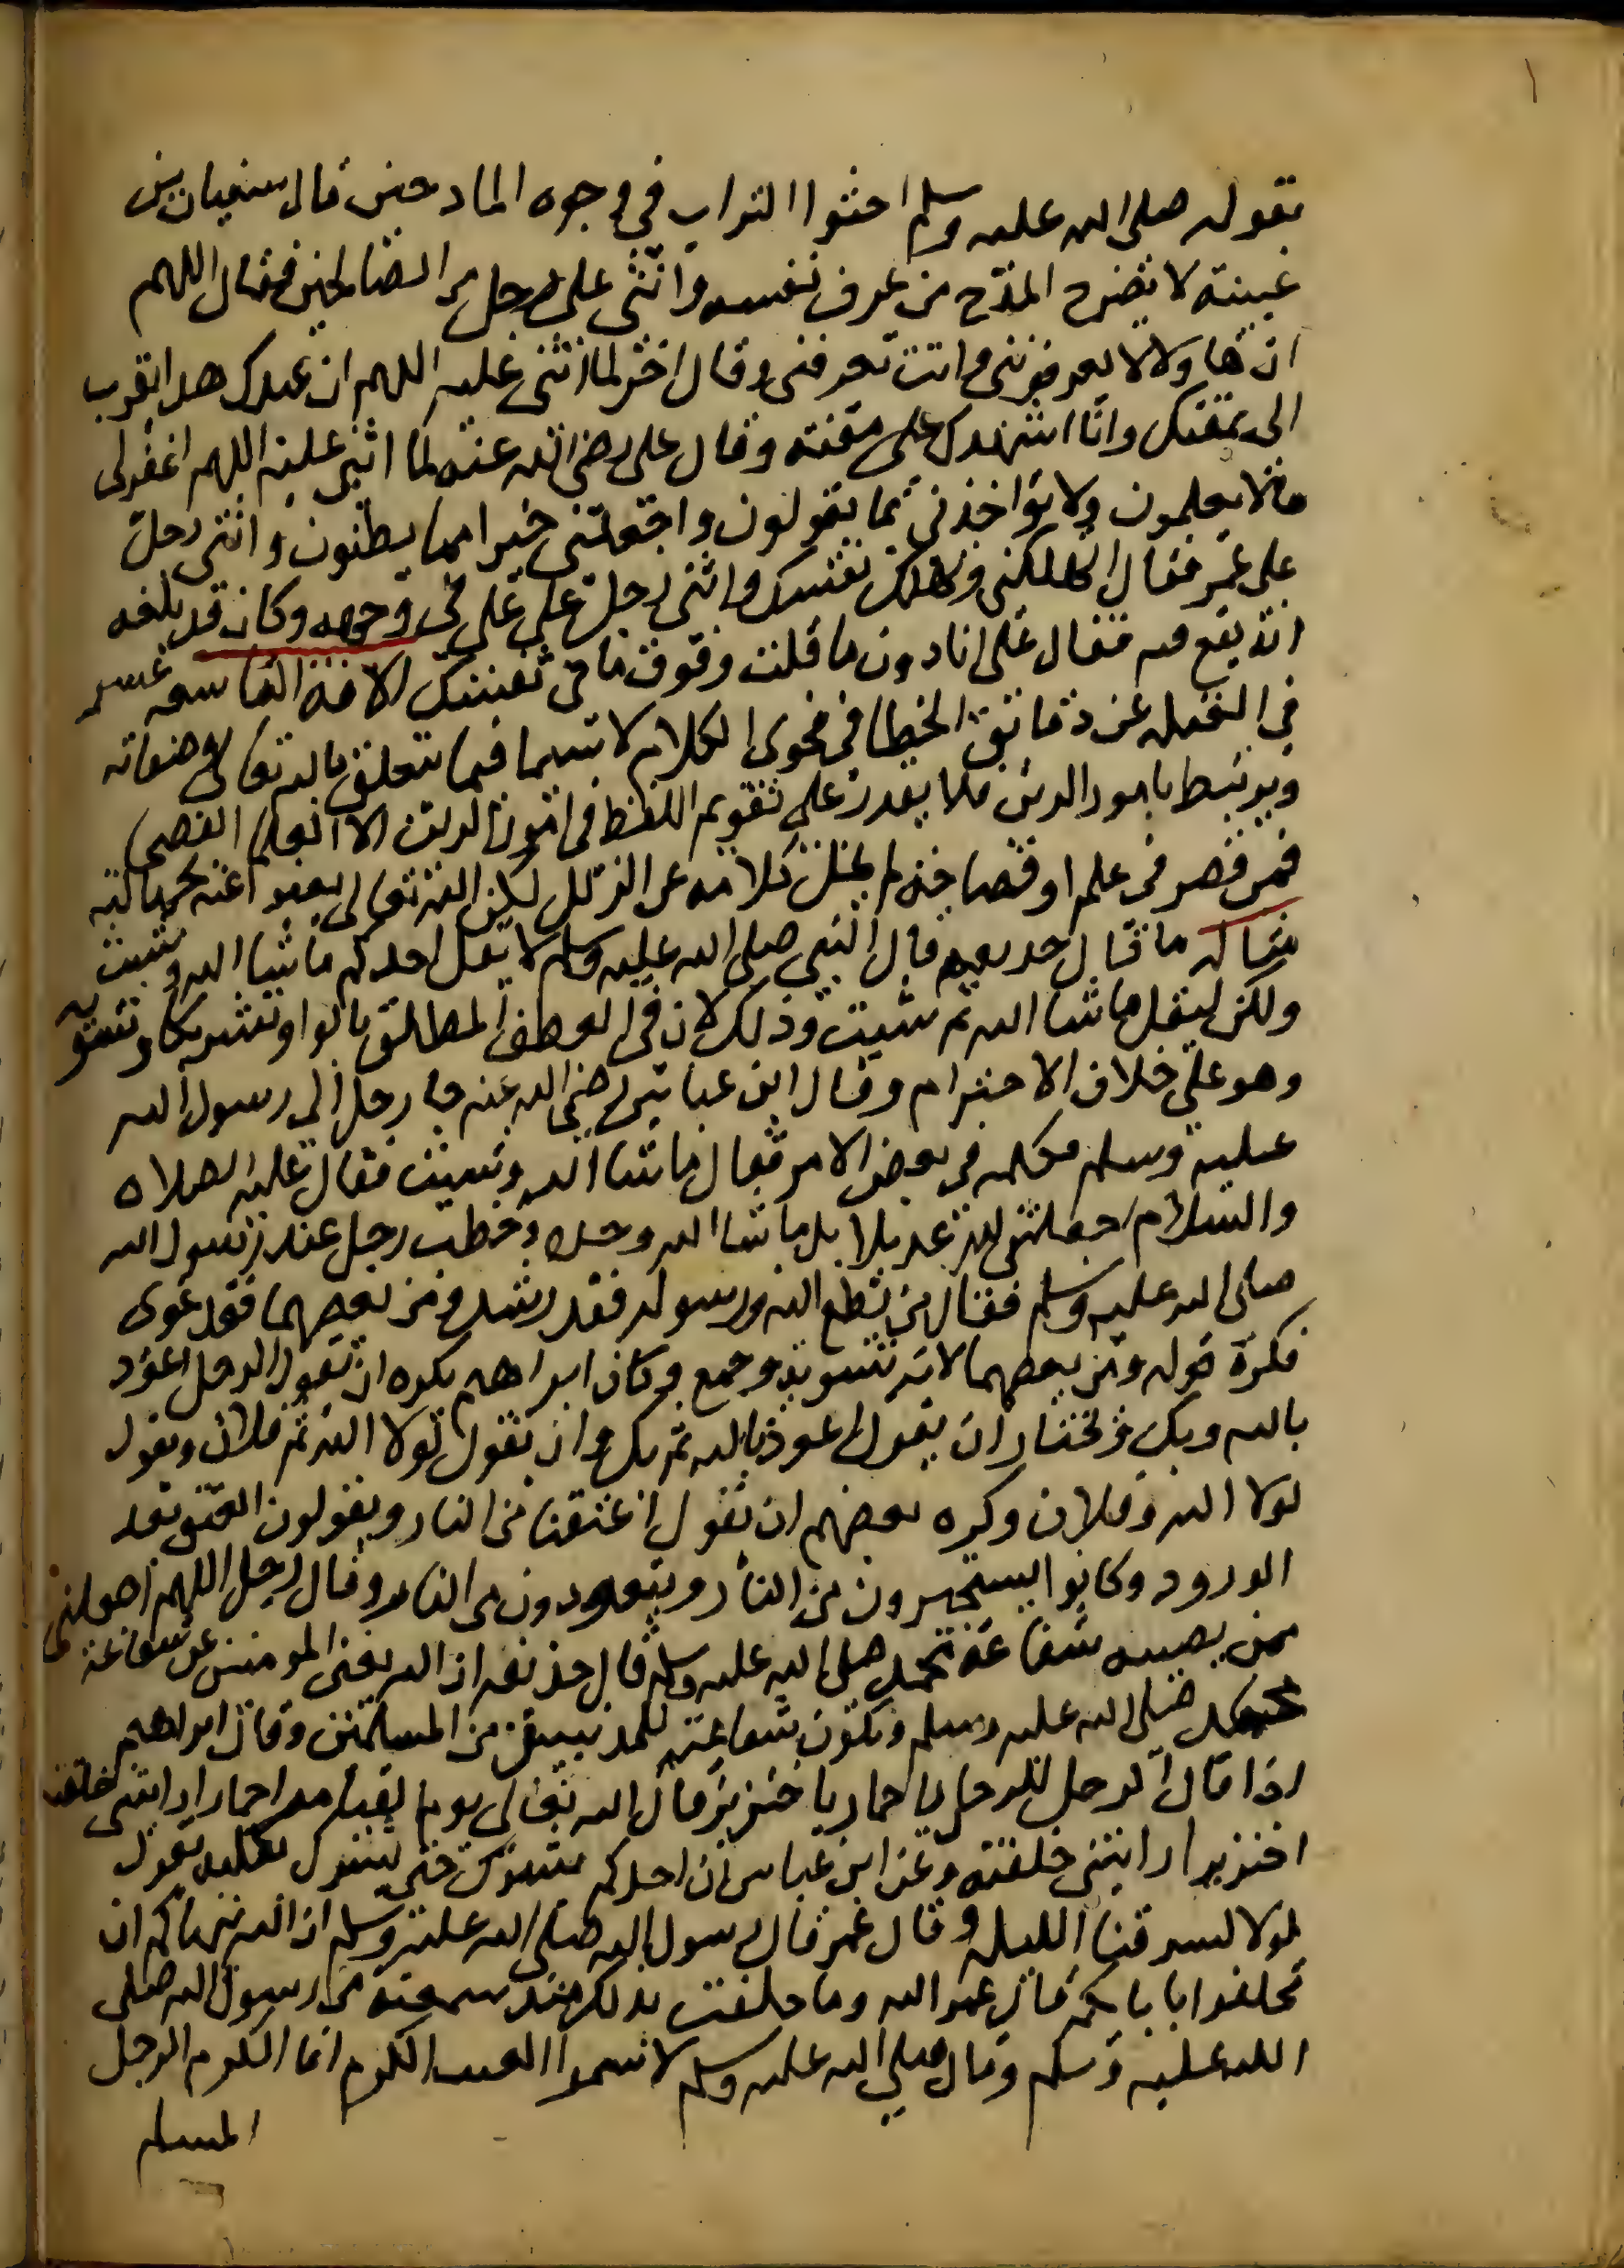 ١
بقوله صلى الله عليه وسلم احثوا التراب في وجوه المادحين قال سفيان بن
عيينة لا يضر المدح من عرف نفسه واثنى على رجل من الصالحين فقال اللهم
ان هاولا لا يعرفونني وانت تعرفني وقال اخر لما اثنى عليه اللهم ان عبدك هدا تقرب
الى بمقتك وانا اشهدك على مقته وقال على رضى الله عنه لما اثنى عليه اللهم اغفر لى
مالا يعلمون ولا تؤاخذني بما يقولون واجعلني خيرا مما يظنون واثنى رجل
على عمر فقال اتهلكني وتهلك نفسك واثنى رجل على على في وجهه وكان قد بلغه
انه يقع فيه فقال على انا دون ما قلت وفوق ما في نفسك الافة التاسعه عشر
في الغفله عن دقائق الخطا في فحوى الكلام لا سيما فيما يتعلق بالله تعالى وصفاته
ويرتبط بامور الدين فلا يقدر على تقويم اللفظ في امور الدين الا العلما الفصحا
فمن قصر في علم او فصاحة لم يخل كلامه عن الزلل لكن الله تعالى يعفوا عنه لجهالته
مثاله ما قال حديفه قال النبي صلى الله عليه وسلم لا يقل احدكم ما شا الله وشيت
ولكن ليقل ما شا الله ثم شيت وذلك لان في العطف المطلق بالواو تشريكا وتسويه
وهو على خلاف الاحترام وقال ابن عباس رضى الله عنه جا رجل الى رسول الله
عليه وسلم فكلمه في بعض الامر فقال ما شا الله وشيت فقال عليه الصلاه
والسلام اجعلتني لله عديلا بل ما شا الله وحده وخطب رجل عند رسول الله
صلى الله عليه وسلم فقال من يطع الله ورسوله فقد رشد ومن يعصهما فقد غوى
فكره قوله ومن يعصهما لانه تسويه وجمع وكان ابراهيم يكره ان يقول الرجل اعوذ
بالله وبك ويختار ان يقول اعوذ بالله ثم بك وان يقول لولا الله ثم فلان ويقول
لولا الله وفلان وكره بعضهم ان يقول اعتقنا من النار ويقولون العتق بعد
الورود وكانوا يستجيرون من النار ويتعوذون من النار وقال رجل اللهم اجعلني
ممن يصيبه شفاعة محمد صلى الله عليه وسلم قال حذيفه ان الله يغني المومنين عن شفاعة
محمد صلى الله عليه وسلم وتكون شفاعته للمذنبين من المسلمين وقال ابراهيم
اذا قال الرجل للرجل يا حمار يا خنزير قال الله تعالى يوم القيامه احمارا رايتني خلقته
اخنزيرا رايتني خلقته وعن ابن عباس ان احدكم يشرك حتى يشرك بكلبه يقول
لولا لسرقنا الليله وقال عمر قال رسول الله صلى الله عليه وسلم ان الله ينهاكم ان
تحلفوا بابايكم قال عمر والله وما حلفت بذلك منذ سمعته من رسول الله صلى
الله عليه وسلم وقال صلى الله عليه وسلم لا تسموا العنب الكرم انما الكرم الرجل
المسلم